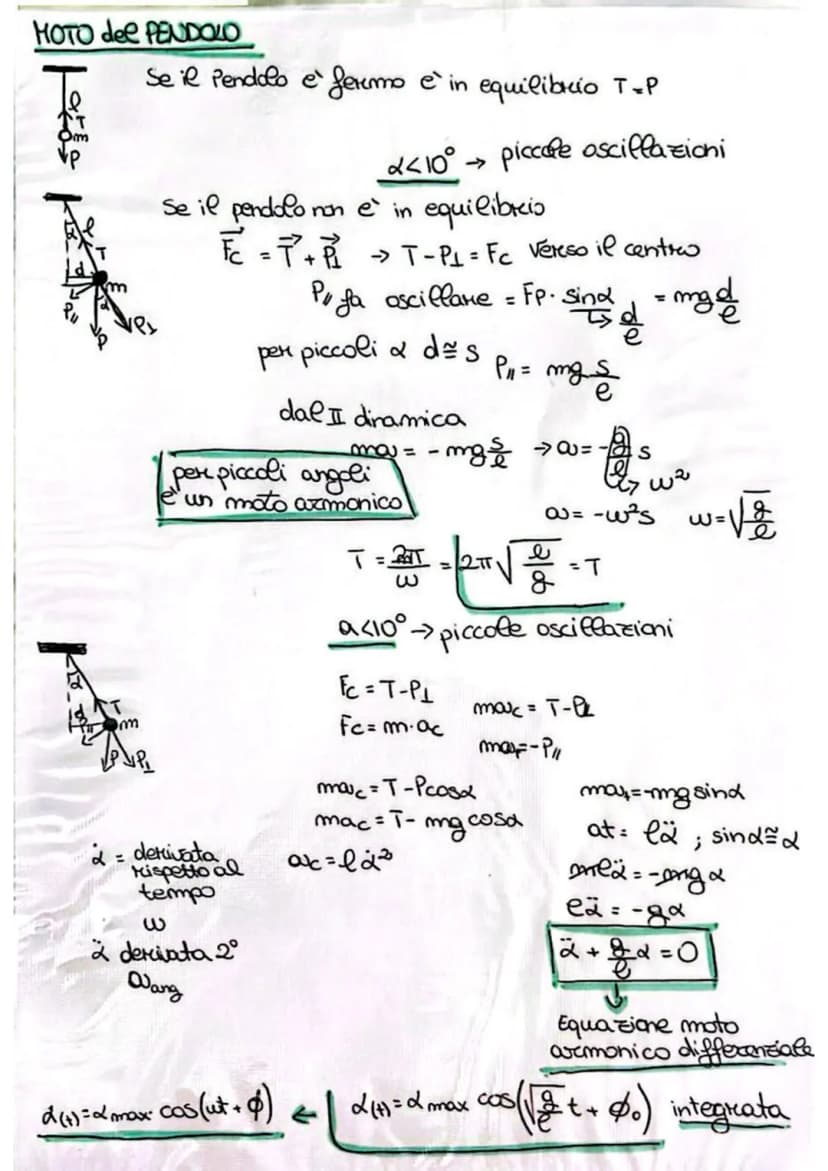 MOTO del PENDOLO
Se il Pendolo è fermo è in equilibrio T=P
l
T
m
P
α<10° → piccole oscillazioni
Se il pendolo non è in equilibrio
Fc = T + P⊥ → T-P⊥ = Fc verso il centro
α l
T
d
m
P∥
α
P
P⊥
P∥ fa oscillare = Fp · sinα = mg d/l
↳ d/l
per piccoli α d≅s P∥ = mg s/l
dal II dinamica
ma = - mg s/l → a = - g/l s
↳ ω²
per piccoli angoli
è un moto armonico
a = -ω²s ω=√g/l
T = 2π/ω = 2π√l/g = T
α<10° → piccole oscillazioni
α
T
d
P∥
m
P
P⊥
Fc = T-P⊥
Fc = m·ac
mac = T-P⊥
mat=-P∥
mac = T-Pcosα
mac = T- mg cosα
ac = l α̇²
mat=-mg sinα
at = lα̈ ; sinα≅α
mlα̈ = -mg α
lα̈ = -gα
α̈ + g/l α = 0
α̇ = derivata
rispetto al
tempo
ω
α̈ derivata 2°
aang
Equazione moto
armonico differenziale
α(t)=α max cos(ωt + ϕ) ← α(t)=α max cos(√g/l t + ϕ₀) integrata